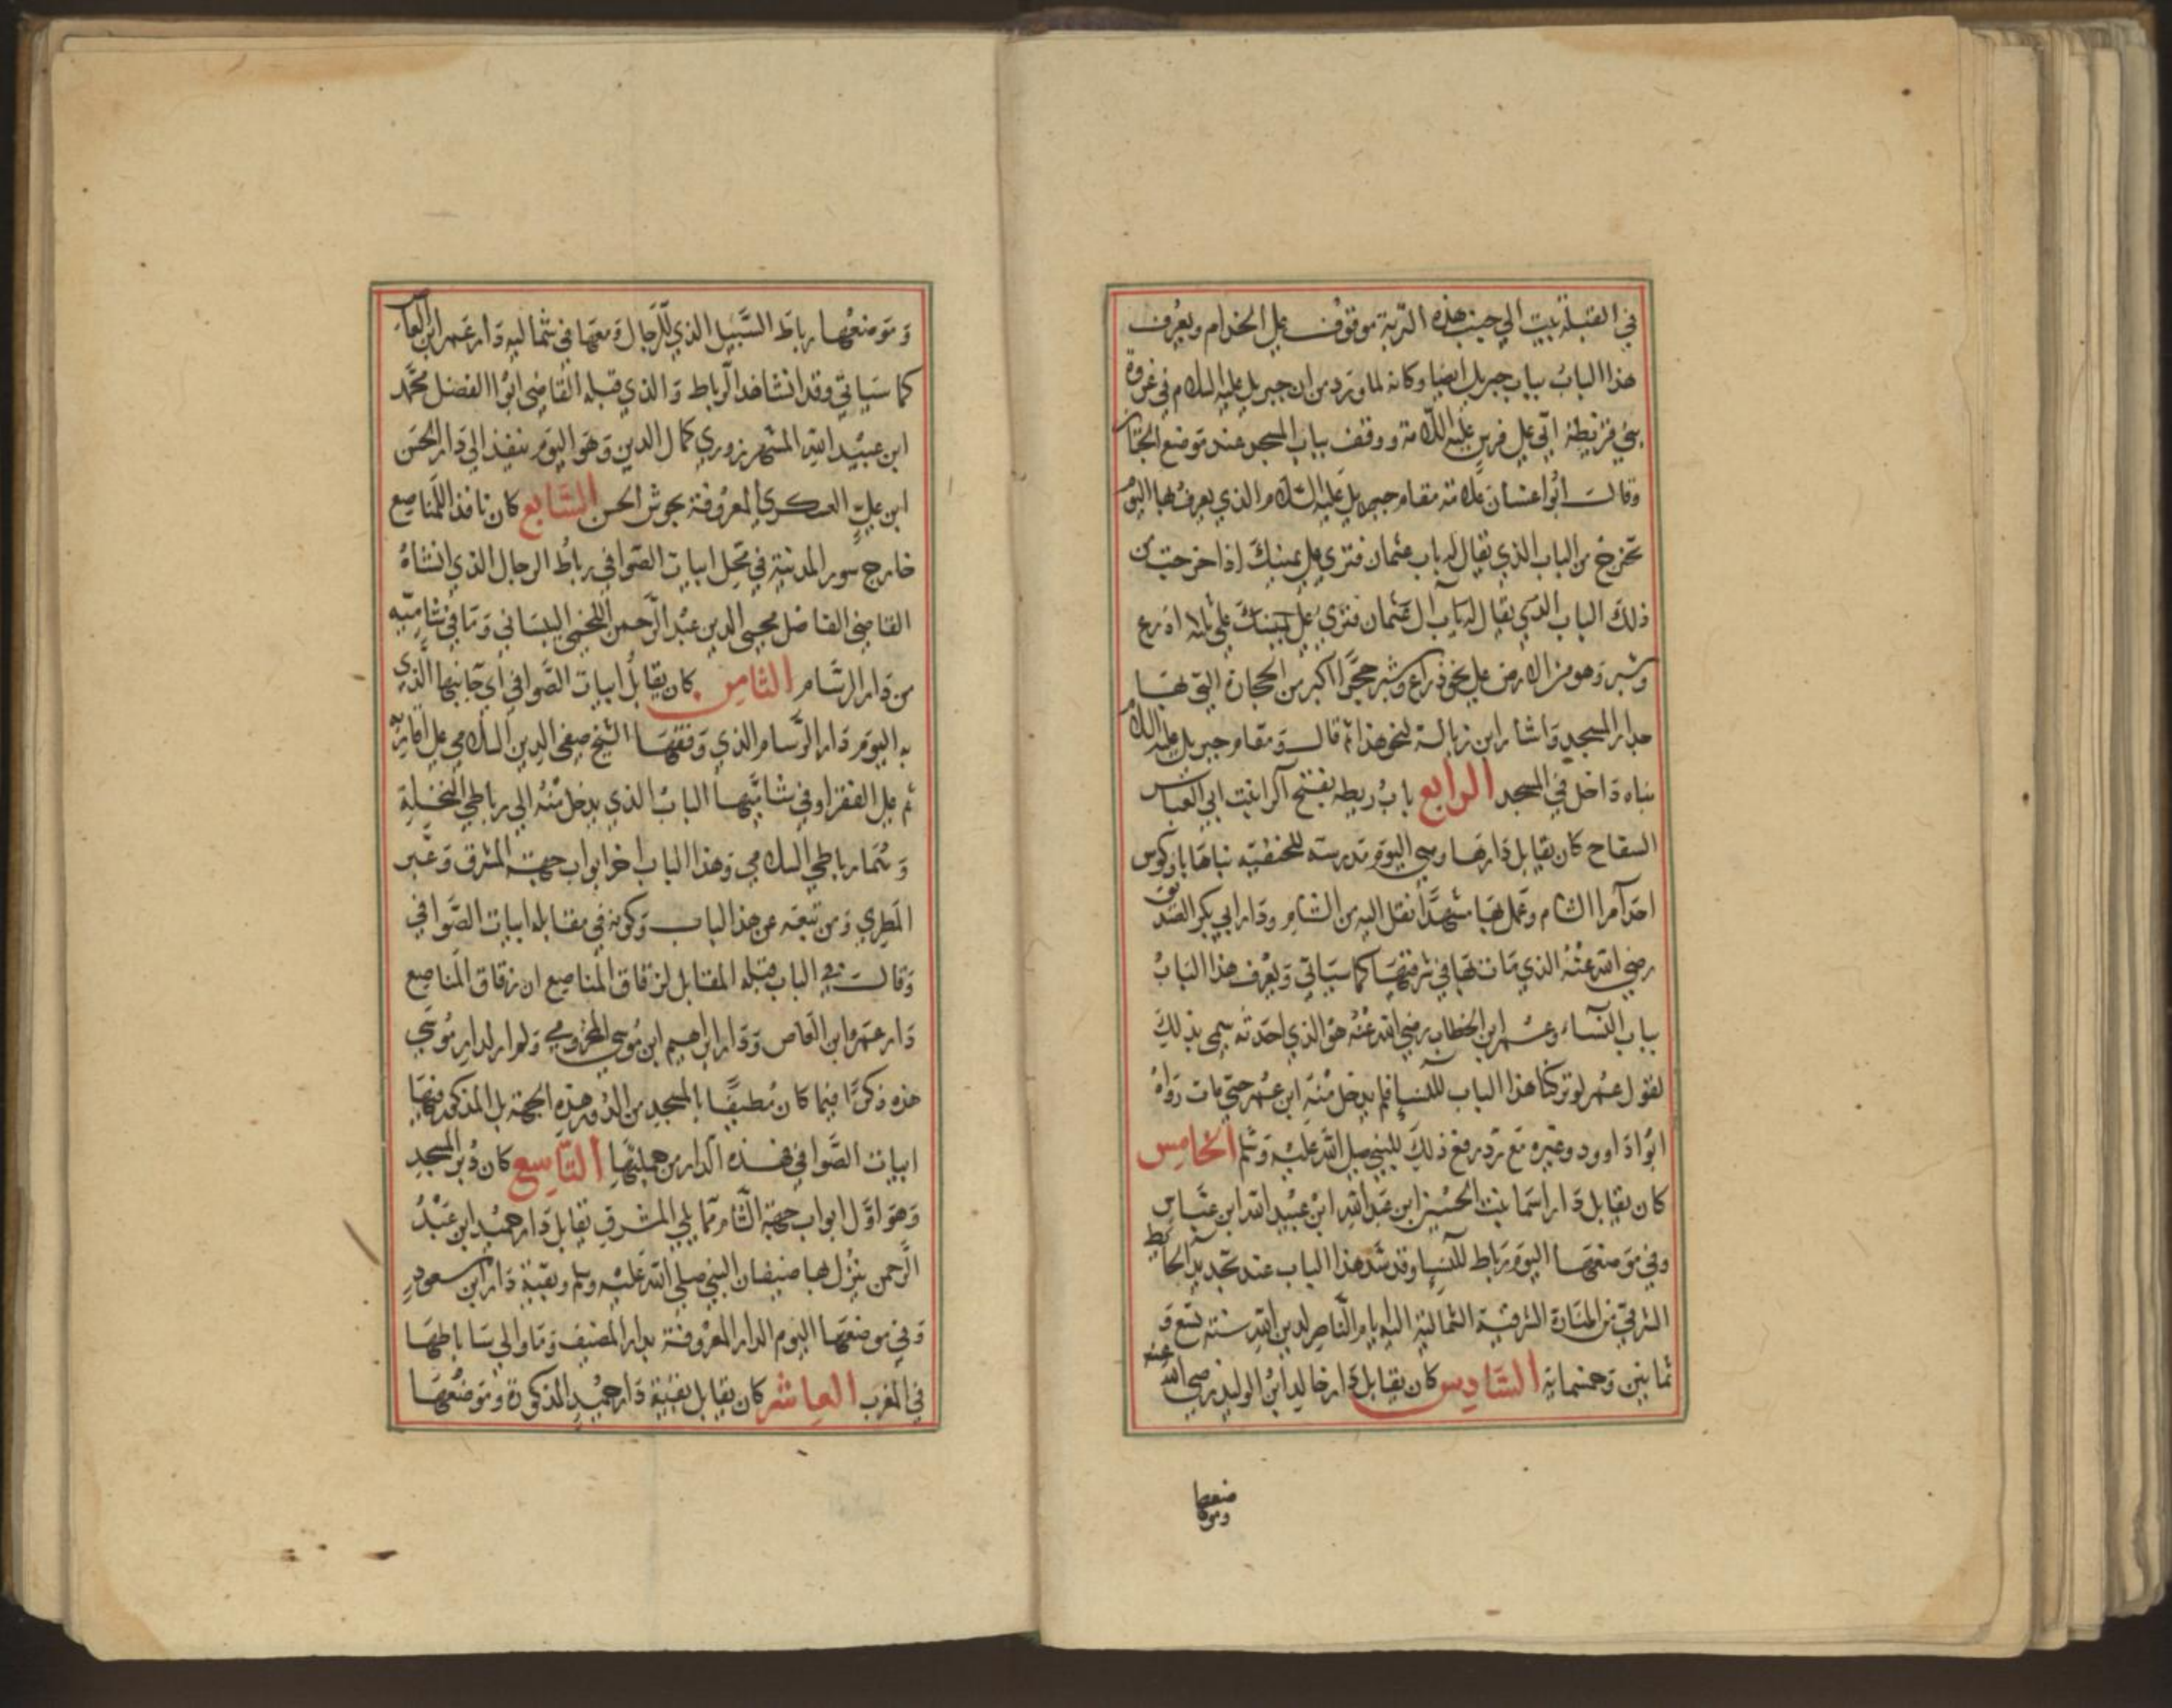 في القبلة بيت الي جنب هذه التربة موقوف علي الخدام ويعرف
هذا الباب بباب جبريل ايضا وكانه لما ورد من ان جبريل عليه السلام في غزوة
بني قريظة اتي علي فرس عليه اللامة ووقف بباب المسجد عند موضع الجنائز
وقالـــ ابوا غسان علامة مقام جبريل عليه السلام الذي يعرف بها اليوم
تخرج من الباب الذي يقال له باب عثمان فتري علي يمينك اذا خرجت من
ذلك الباب الذي يقال له باب آل عثمان فتري علي يمينك علي ثلاثة اذرع
وشبر وهو من الارض علي نحو ذراع وشبر حجرا اكبر من الحجارة التي بها
جدار المسجد واشار ابن زبالة لنحو هذا ثم قالـــ ومقام جبريل عليه السلام
بناه داخل في المسجد الرابع باب ريطه بفتح الرا بنت ابي العباس
السفاح كان يقابل دارها وهي اليوم مدرسة للحنفية بناها ياركوس
احد امرا الشام وعمل بها مشهدا نقل اليه من الشام ودار ابي بكر الصديق
رضي الله عنه الذي مات بها في شرقيها كما سياتي ويعرف هذا الباب
بباب النساء وعمر ابن الخطاب رضي الله عنه هو الذي احدثه سمي بذلك
لقول عمر لو تركنا هذا الباب للنسا فلم يدخل منه ابن عمر حتي مات رواه
ابوا داوود وغيره مع تردد رفع ذلك للنبي صلي الله عليه وسلم الخامس
كان يقابل دار اسما بنت الحسين ابن عبد الله ابن عبيد الله ابن عباس
وفي موضعها اليوم رباط للنسا وقد سد هذا الباب عند تجديد الحائط
الشرقي من المنارة الشرقية الشمالية اليه ايام الناصر لدين الله سنة تسع و
ثمانين وخمسماية السادس كان يقابل دار خالد ابن الوليد رضي الله عنه
وموضعها
وموضعها رباط السبيل الذي للرجال ومعها في شماليه دار عمر ابن العاص
كما سياتي وقد انشا هذا الرباط والذي قبله القاضي ابوا الفضل محمد
ابن عبيد الله الشهرزوري كمال الدين وهو اليوم ينفذ الي دار الحسن
ابن علي العسكري المعروفة بحوش الحسن السابع كان نافذا للمناصع
خارج سور المدينة في محل ابيات الصوافي رباط الرجال الذي انشاه
القاضي الفاضل محيي الدين عبد الرحمن اللخمي البيساني وما في شاميه
من دار الرسام الثامن كان يقابل ابيات الصوافي اي جانبها الذي
به اليوم دار الرسام الذي وقفها الشيخ صفي الدين السلامي علي اقاربه
ثم علي الفقرا وفي شاميها الباب الذي يدخل منه الي رباطي النخلية
وشمار باطي السلامي وهذا الباب اخر ابواب جهة المشرق وعبر
المطري ومن تبعه عن هذا البابـــ وكونه في مقابله ابيات الصوافي
وقالـــ في الباب قبله المقابل لزقاق المناصع ان زقاق المناصع
دار عمرو ابن العاص ودار ابراهيم ابن موسي المخزومي ولم ار لدار موسي
هذه ذكرا فيما كان مطبفا بالمسجد من الدور هذه الجهة بل المذكور فيها
ابيات الصوافي هذه الدار من جملتها التاسع كان دبر المسجد
وهو اول ابواب جهة الشام مما يلي المشرق يقابل دار حميد ابن عبد
الرحمن ينزل بها ضيفان النبي صلي الله عليه وسلم وبقية دار ابن مسعود
وفي موضعها اليوم الدار المعروفة بدار المضيف وما والي ساباطها
في المغرب العاشر كان يقابل بقية دار حميد المذكورة وموضعها